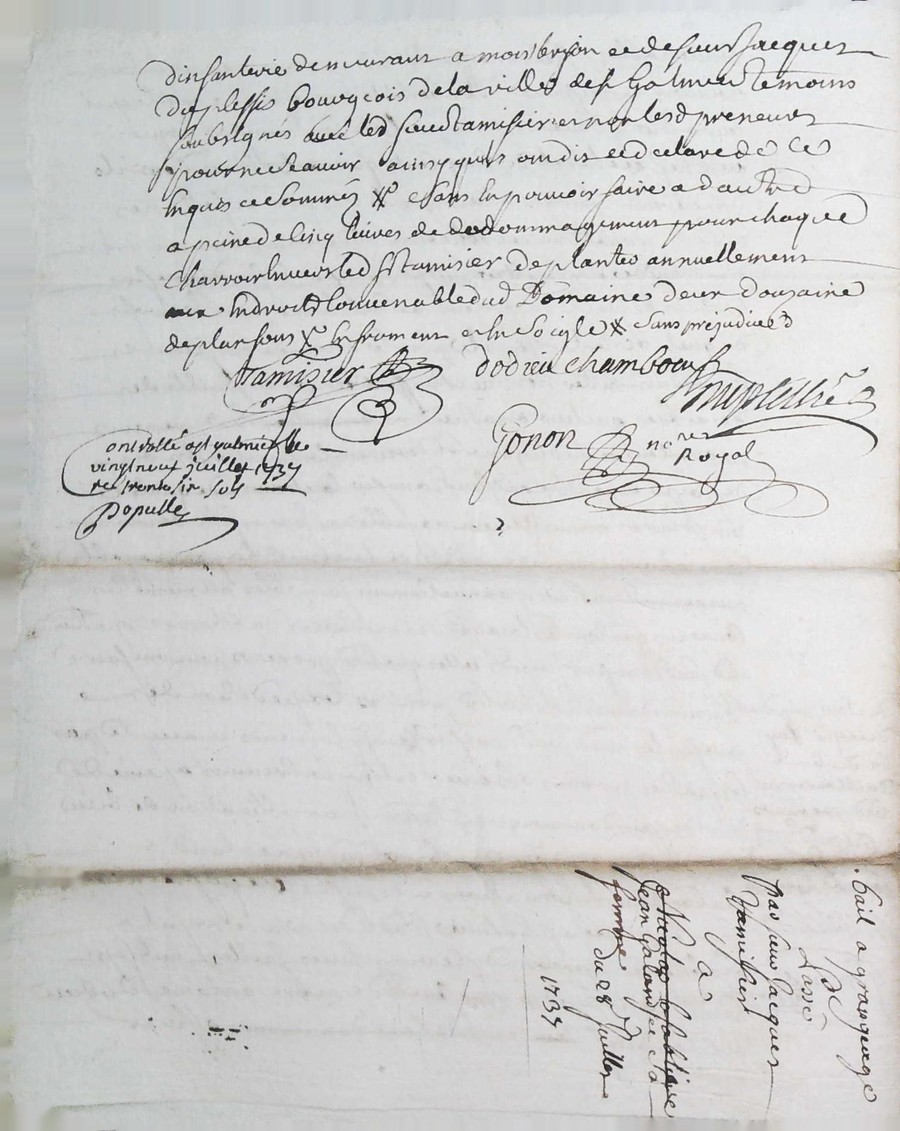 dinfanterie demeurant a montbrison et de sieur Jacques
Duplessis bourgeois de la ville de st Galmier temoins
soubsignés avec led sieur tamisier et non lesd preneurs
pour ne scavoir ainsy quils ont dit et declaré de ce
enquis et sommés X et sans le pouvoir faire a dautre
a peine de cinq livres de dedommagement pour chaque
charroir envers led sr tamisier de planter annuellement
aux endroits convenable dud Domaine deux douzaine
de plansons X en froment et en soigle X sans prejudice
Tamisier
dodieu chamboeuf
Duplessis
Gonon nore Royal
controllé a st galmier le
vingt neuf juillet 1737
re trente six sols
Populle
bail a grangeage
passé
Par sieur Jacques
Tamisier
a
Jean Galand et sa
femme
du 28 Juillet
1737